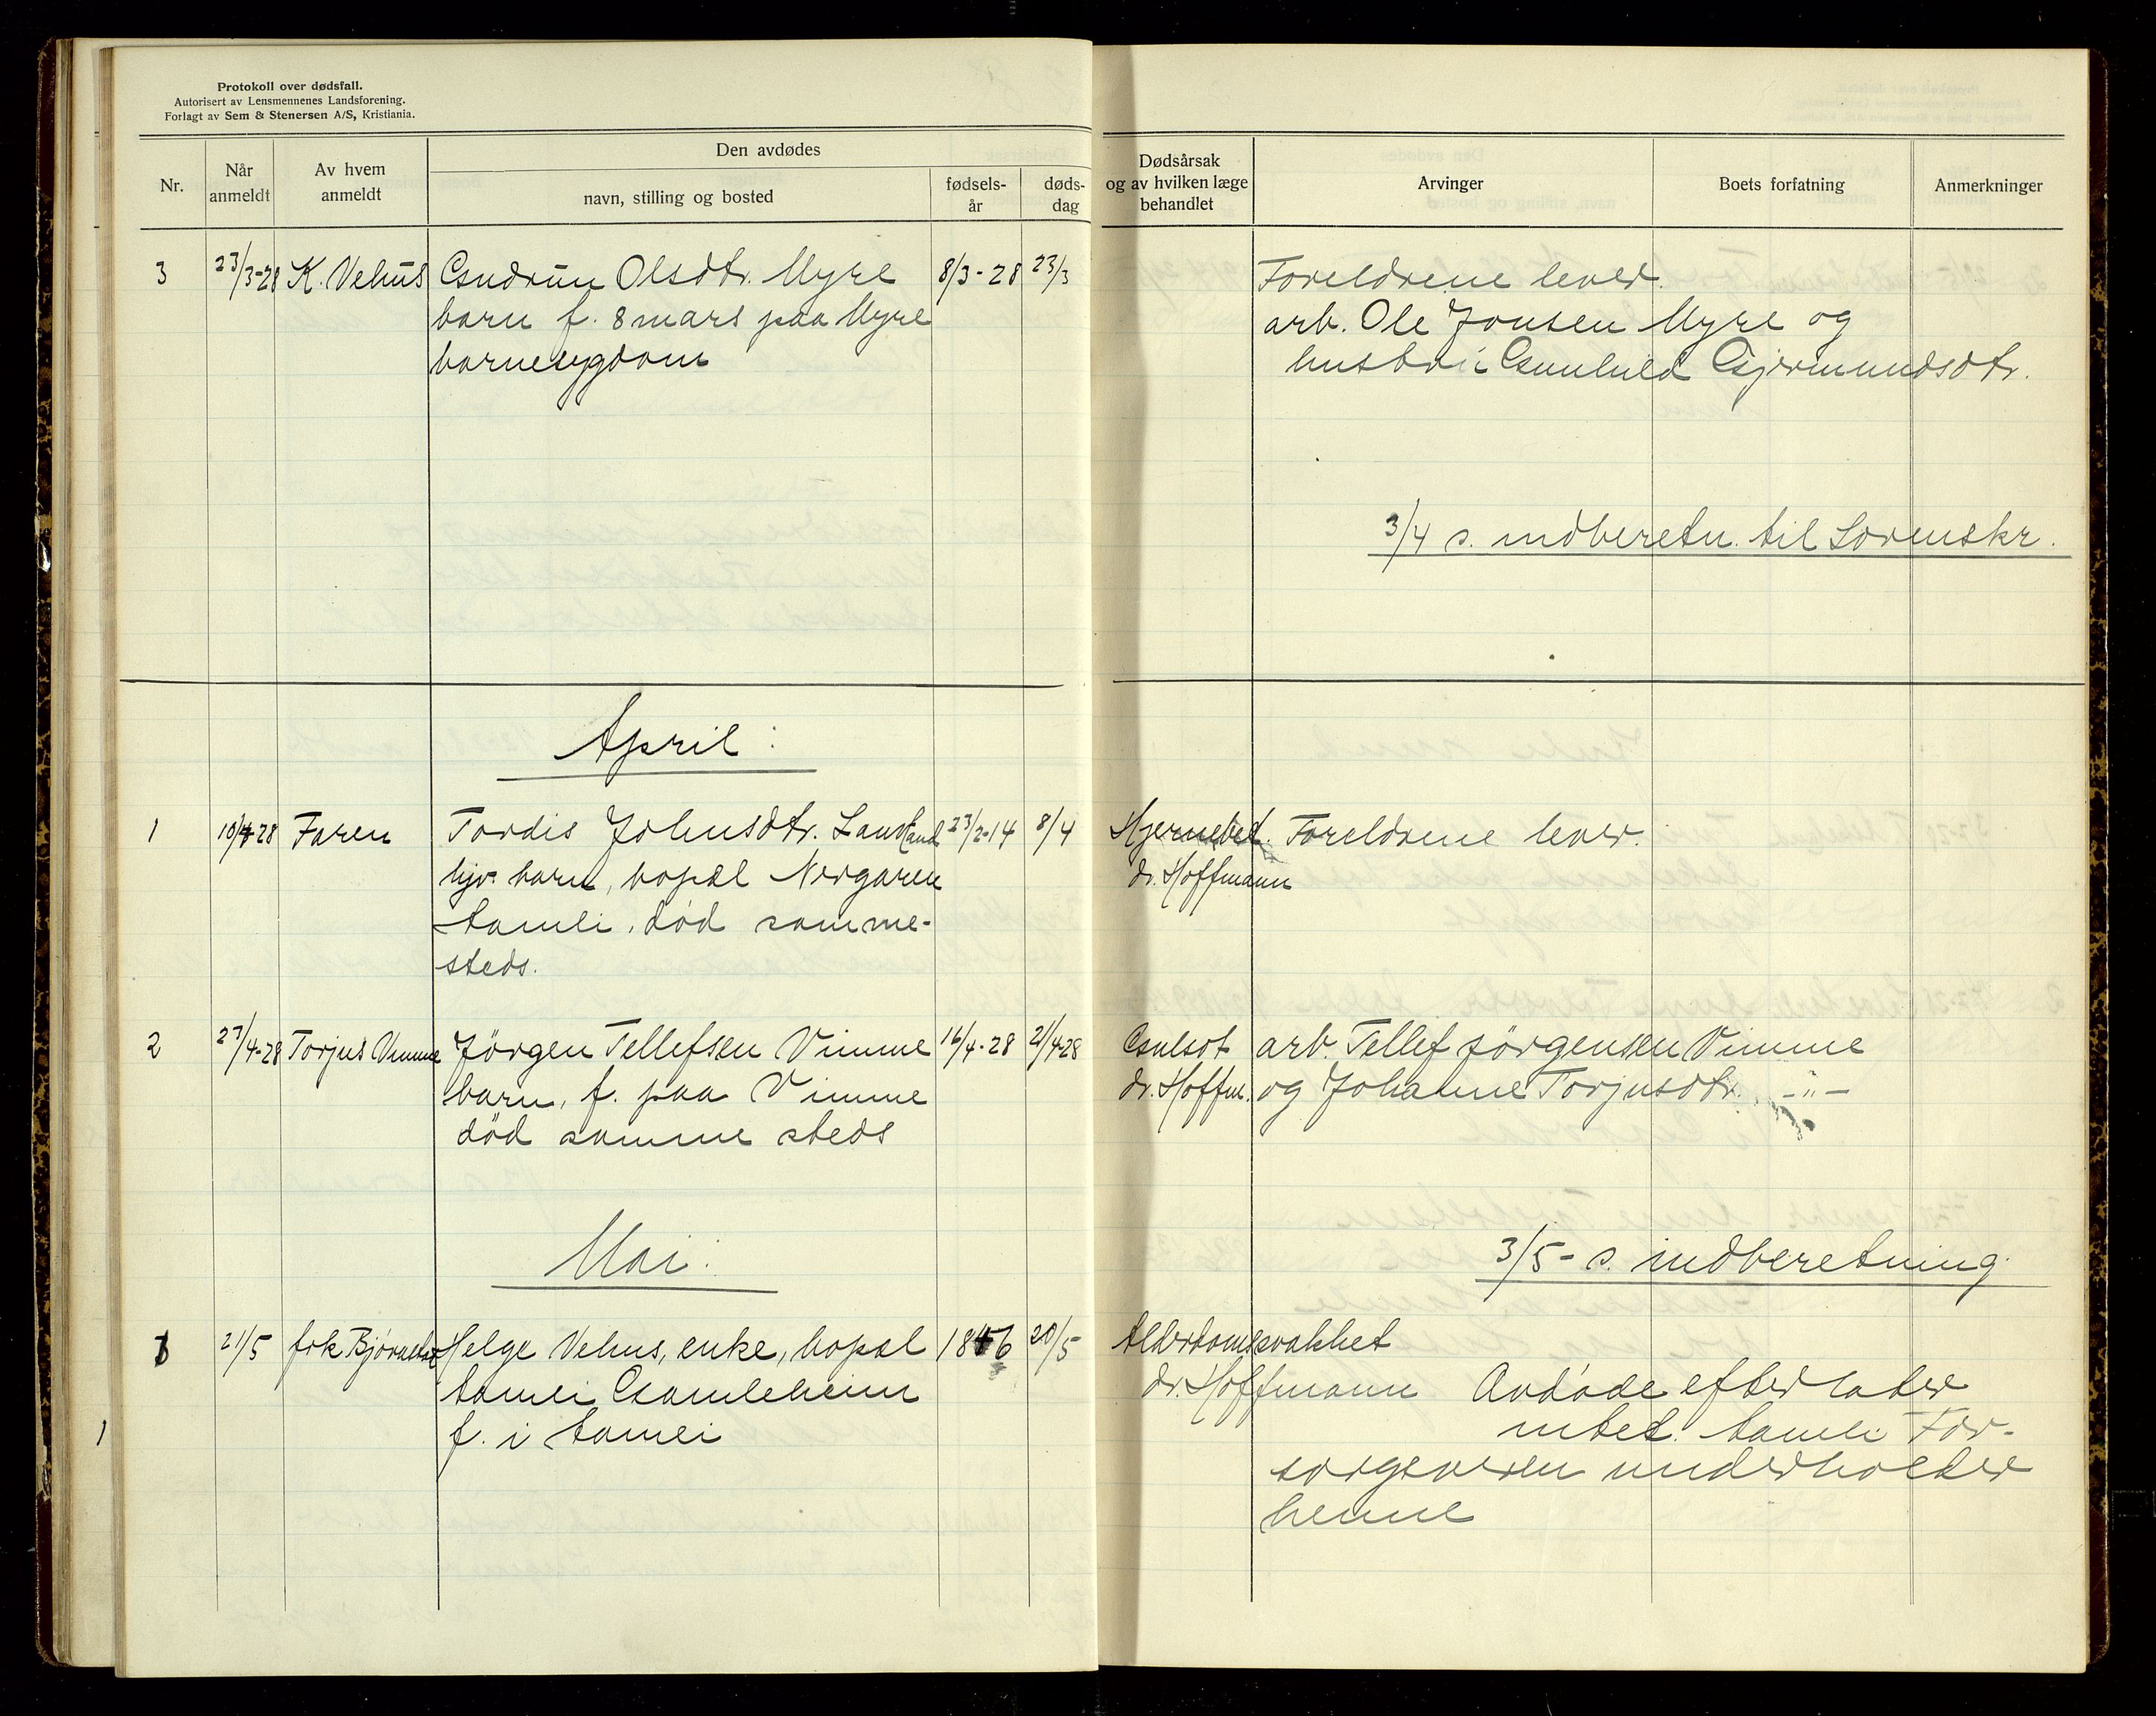 Protokoll over dødsfall.
Autorisert av Lensmennenes Landsforening.
Forlagt av Sem & Stenersen A/S, Kristiania.
Nr.
Når anmeldt
Av hvem anmeldt
Den avdødes
navn, stilling og bosted
fødsels-år
døds-dag
Dødsårsak og av hvilken læge behandlet
Arvinger
Boets forfatning
Anmerkninger
3 23/3-28 K. Vehus Gudrun Olsdtr. Myre 8/3-28 23/3 Foreldrene lever.
barn f. 8 mars paa Myre arb. Ole Jonsen Myre og
barnesygdom hustru Gunhild Gjermundsdtr.
3/4 s. indberetn. til Sorenskr.
April:
1 10/4-28 Faren Tordis Johnsdtr. 23/2-14 8/4 Hjernebet. Foreldrene lever.
hjv. barn, bopæl Nergaren dr. Hoffmann
Åmli, død samme-
steds.
2 27/4-28 Torjus Vimme Jörgen Tellefsen Vimme 16/4-28 21/4-28 Gulsot arb. Tellef Jörgensen Vimme
barn, f. paa Vimme dr. Hoffm. og Johanne Torjusdtr. -"-
död samme steds
Mai:
3/5- s. indberetning.
1 21/5 frk Helge Vehus, enke, bopæl 1846 20/5 Alderdomssvakhet
Åmli Gamleheim dr. Hoffmann Avdøde efterlater
f. i Åmli intet. Åmli For-
sorgsvesen underholder
henne
1